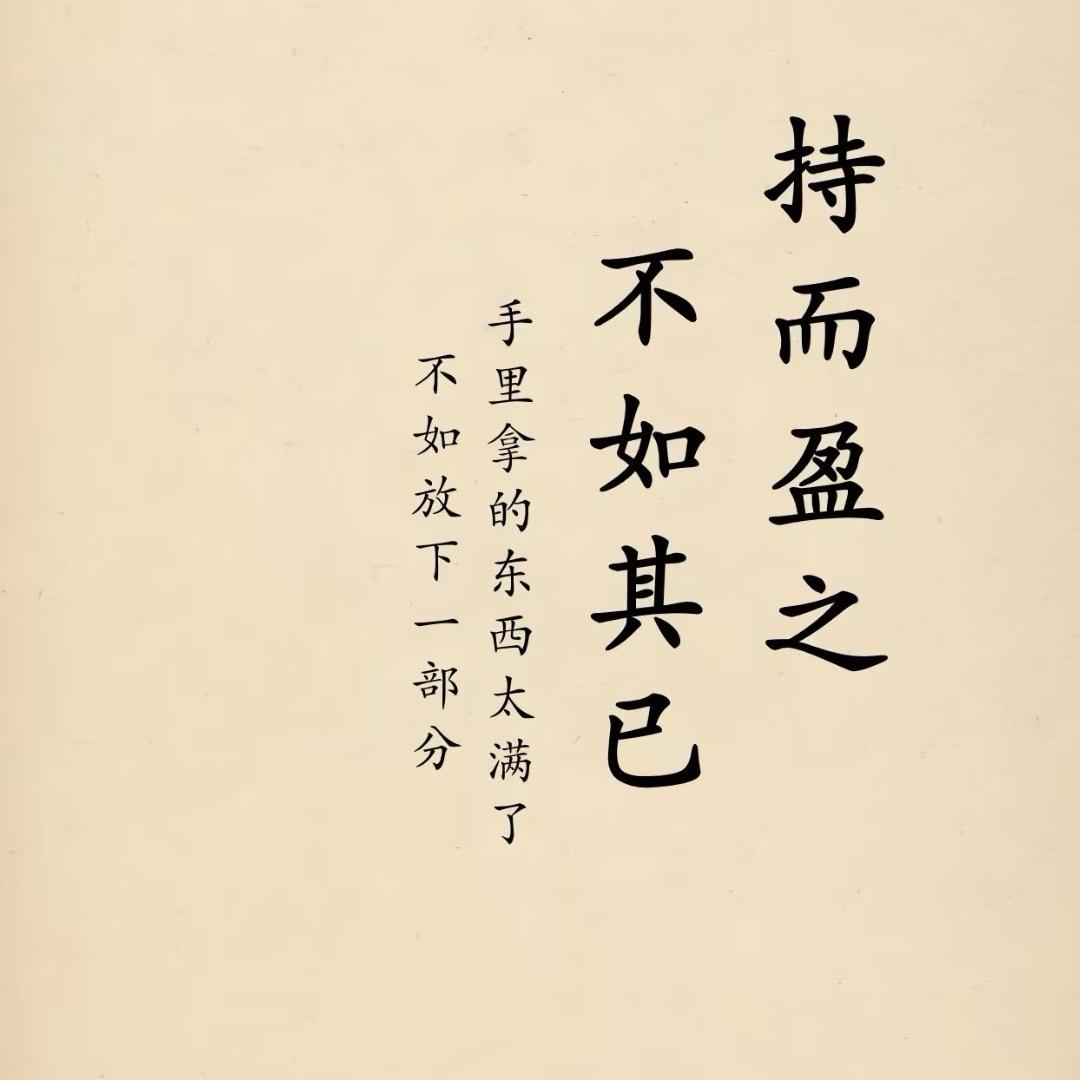 持而盈之
不如其已
手里拿的东西太满了
不如放下一部分